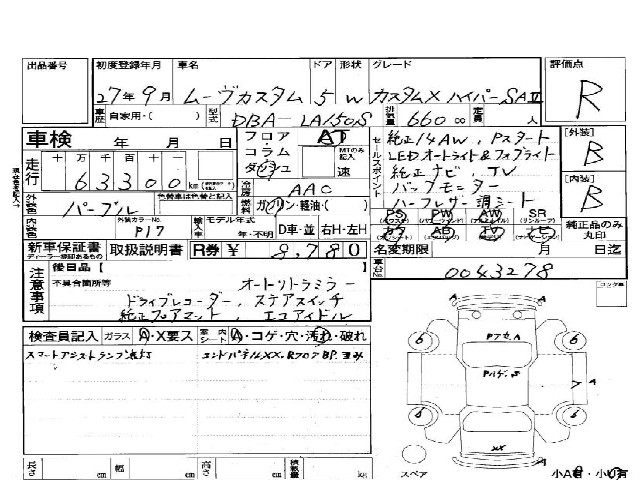 出品番号 初度登録年月 車名 ドア 形状 グレード 評価点
27年9月 ムーヴカスタム 5 W カスタムX ハイパーSAⅡ R
車歴 自家用・( ) 型式 DBA-LA150S 排気量 660cc 定員 人
車検 年 月 日 フロア コラム ダッシュ AT MTのみ記入 速
走行 十万千百十 63300 km
セールスポイント
純正14AW、Pスタート
LEDオートライト&フォグライト
純正ナビ、TV
バックモニター
ハーフレザー調シート
[外装] B
[内装] B
冷房 AAC
外装色 パープル 色替車は色替と記入 燃料 ガソリン・軽油・( )
内装色 外装カラーNo. P17 輸入車 モデル年式 年・不明 D車・並 右H・左H
PS PW AW SR
カワ AB TV ナビ
純正品のみ丸印
新車保証書 取扱説明書 R券 ¥ 8,780 名変期限 月 日迄
ディーラー印あるもの
車台No. 0043278
注意事項 後日品【 】
不具合箇所等 オートリトラミラー
ドライブレコーダー、ステアスイッチ
純正フロアマット、エコアイドル
検査員記入 ガラス A・X要ス 室内シート A・コゲ・穴・汚れ・破れ
スマートアシストランプ点灯 エンドパネルXX、RフロアBP、ヨみ
A
6 6
6 6
A
XX
スペア
長さ cm 幅 cm 高さ cm 積載量 kg